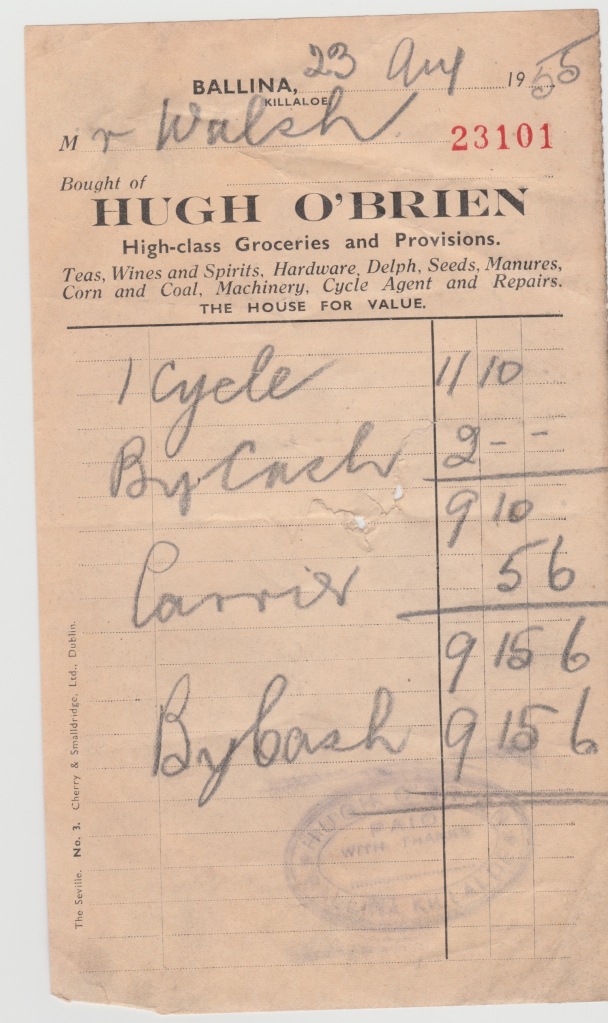 BALLINA, 23 Aug 1955
KILLALOE.
Mr Walsh. 23101
Bought of
HUGH O'BRIEN
High-class Groceries and Provisions.
Teas, Wines and Spirits, Hardware, Delph, Seeds, Manures,
Corn and Coal, Machinery, Cycle Agent and Repairs.
THE HOUSE FOR VALUE.
1 Cycle 11 10
By Cash 2 - -
9 10
Carrier 5 6
9 15 6
By Cash 9 15 6
HUGH
PAID
WITH THANKS
The Seville. No. 3. Cherry & Smalldridge, Ltd., Dublin.